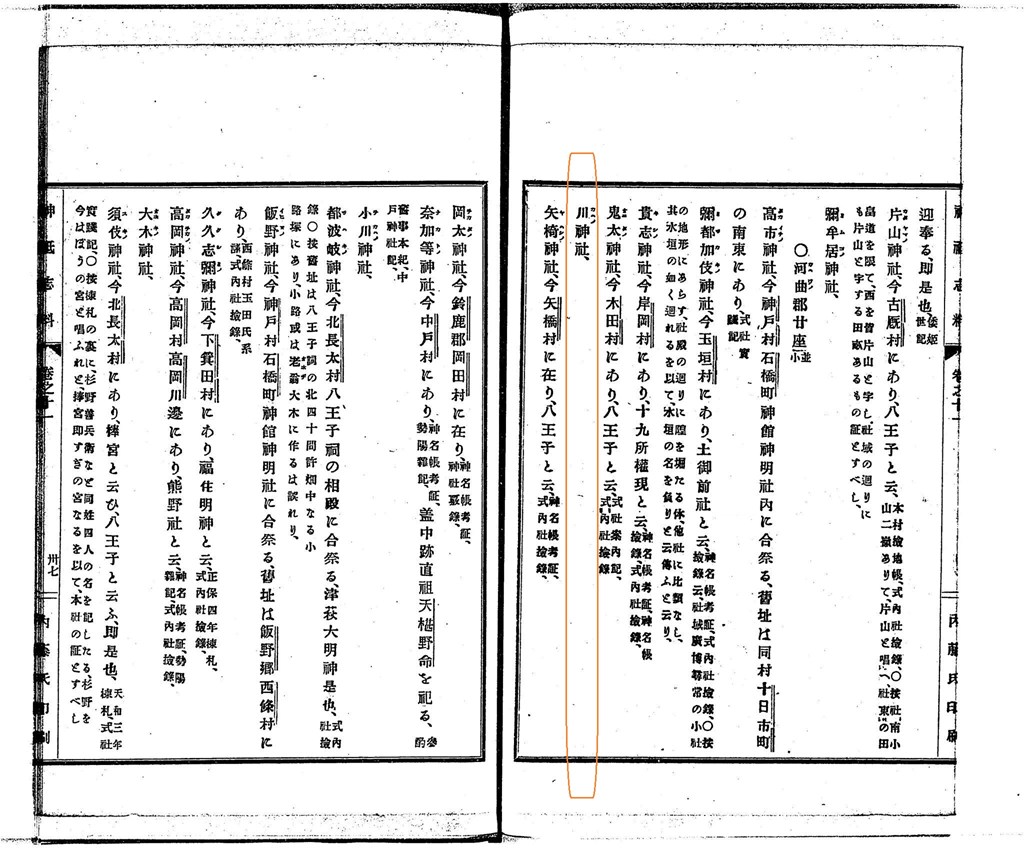 迎奉る、即是也、倭姫世記
片山神社、今古厩村にあり、八王子と云、木村撿地帳、式內社撿錄、〇按社、南小山二嶽ありて、片山と唱へ、社東の田
畠道を限て、西を皆片山と字し社域の廻りにも片山と字する田畝あるもの証とすべし、
彌牟居神社、
〇河曲郡廿座並小
高市神社、今神戸村石橋町神館神明社內に合祭る、舊址は同村十日市町
の南東にあり、式社實踐記
彌都加伎神社、今玉垣村にあり、土御前社と云、神名帳考証、式內社撿錄、〇按撿錄云、社域廣博尋常の小社
の地形にあらす、社殿の廻りに隍を堀たる体、他社に比類なし、其氷垣の如く廻れるを以て、氷垣の名を負りと云傳ふと云り、
貴志神社、今岸岡村にあり、十九所權現と云、神名帳考証、神名帳撿錄、式內社撿錄、
鬼太神社、今木田村にあり、八王子と云、式社案內記、式內社撿錄
川神社、
矢椅神社、今矢橋村に在り、八王子と云、神名帳考証、式內社撿錄、
岡太神社、今鈴鹿郡岡田村に在り、神名帳考証、神社覈錄、
奈加等神社、今中戸村にあり、神名帳考証、勢陽雜記、盖中跡直祖天椹野命を祀る、參酌
舊事本紀、中戸神社記、
小川神社、
都波岐神社、今北長太村八王子祠の相殿に合祭る、津萩大明神是也、式內社撿
錄〇按舊址は八王子祠の北四十間許畑中なる小路塚にあり、小路或は老翁大木に作るは誤れり、
飯野神社、今神戸村石橋町神館神明社に合祭る、舊址は飯野鄕西條村に
あり、西條村玉田氏系譜、式內社撿錄、
久久志彌神社、今下箕田村にあり、福住明神と云、正保四年棟札、式內社撿錄、
高岡神社、今高岡村高岡川邊にあり、熊野社と云、神名帳考証、勢陽雜記、式內社撿錄、
大木神社、
須伎神社、今北長太村にあり、榉宮と云ひ、八王子と云ふ、即是也、天和三年棟札、式社
實踐記、〇按棟札の裏に、杉野善兵衛など同姓四人の名を記したる、杉野を今はほうの宮と唱ふれど、榉宮即すぎの宮なるを以て、本社の証とすべし
神祇志料
卷之十一
卅七
內藤氏印刷